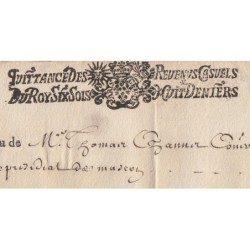 QUITTANCE DES REVENUS CASUELS
DU ROY SIX SOLS HUIT DENIERS
de Mre Thomas
presidial de mascon